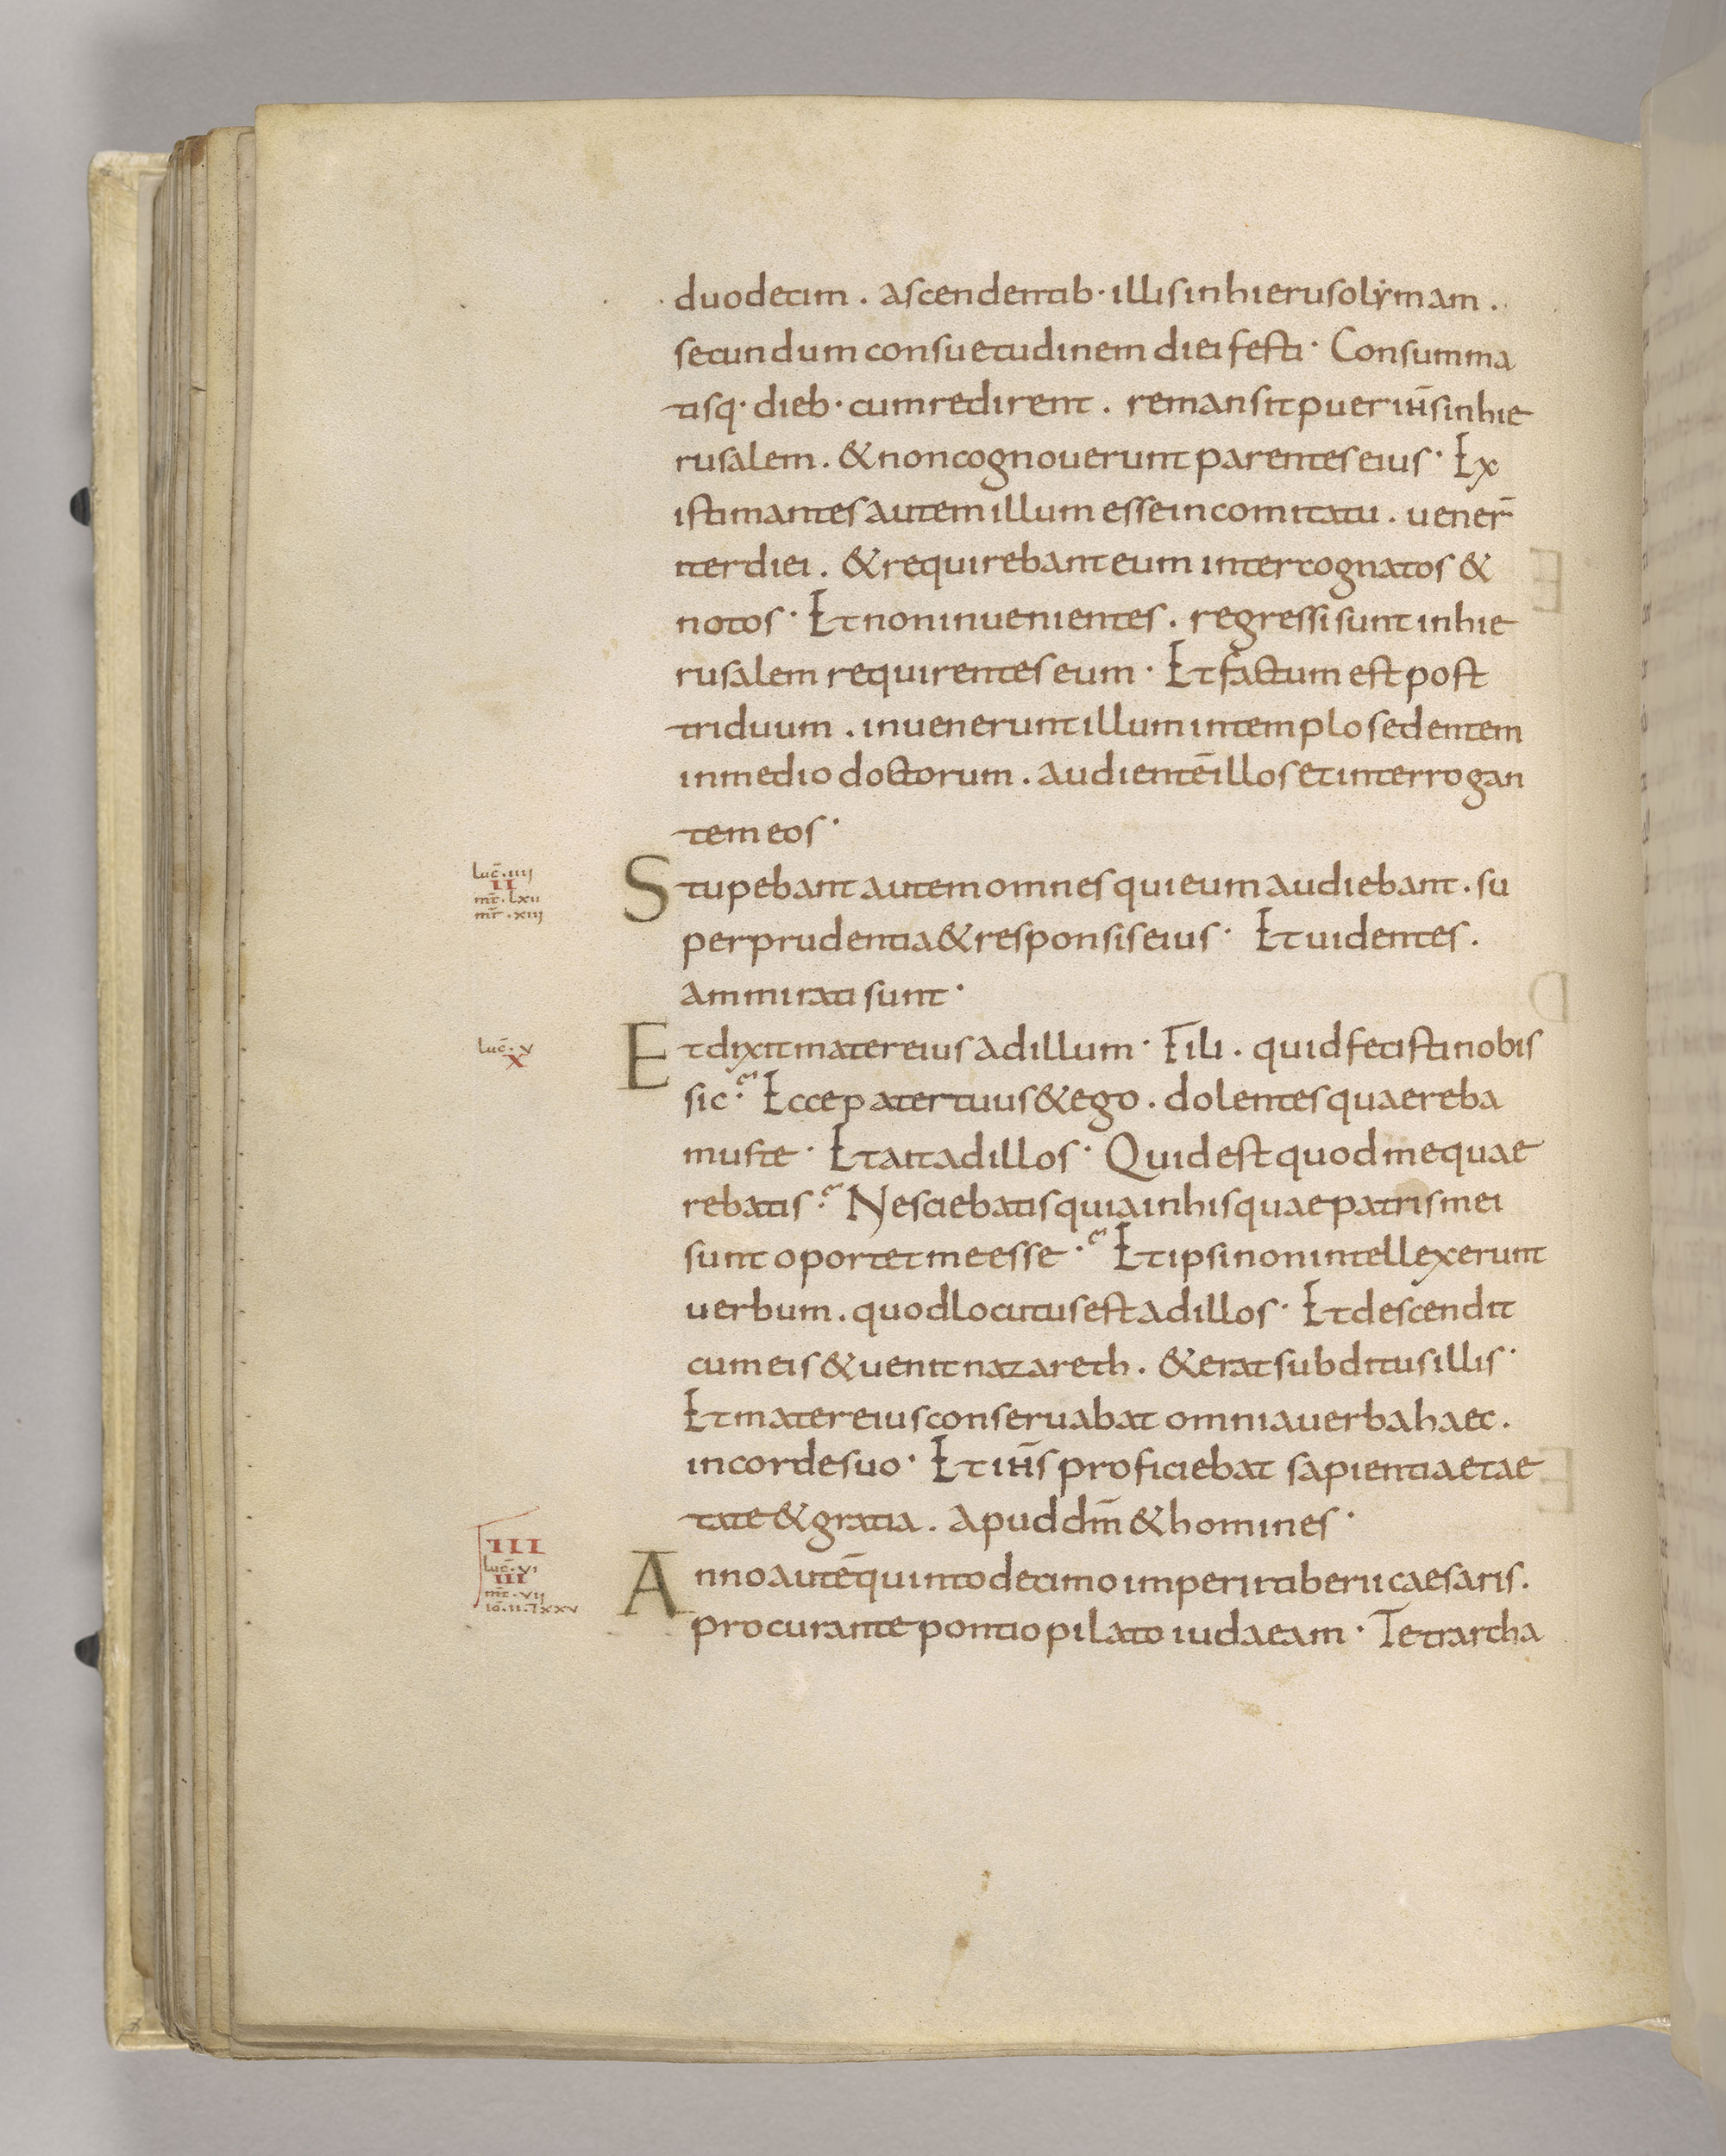 duodecim . ascendentib· illis in hierusolymam .
secundum consuetudinem diei festi · Consumma
tisq· dieb· cum redirent . remansit puer ihs̄ in hie
rusalem . & non cognouerunt parentes eius · Ex
istimantes autem illum esse in comitatu . uener̄
iter diei . & requirebant eum inter cognatos &
notos · Et non inuenientes . regressi sunt in hie
rusalem requirentes eum · Et factum est post
triduum . inuenerunt illum in templo sedentem
in medio doctorum . audientē illos et interrogan
tem eos ·
luc̄ · iiii
II
mt̄ · lxii
mr̄ · xiii
Stupebant autem omnes qui eum audiebant . su
per prudentia & responsis eius · Et uidentes .
ammirati sunt ·
luc̄ · v
X
Et dixit mater eius ad illum · Fili . quid fecisti nobis
sic ? Ecce pater tuus & ego . dolentes quaereba
mus te · Et ait ad illos · Quid est quod me quae
rebatis ? Nesciebatis quia in his quae patris mei
sunt oportet me esse ? Et ipsi non intellexerunt
uerbum . quod locutus est ad illos · Et descendit
cum eis & uenit nazareth . & erat subditus illis ·
Et mater eius conseruabat omnia uerba haec .
in corde suo · Et ihs̄ proficiebat sapientia et ae
tate & gratia . apud dm̄ & homines ·
III
luc̄ · vi
III
mt̄ · vii
Anno autē quinto decimo imperii tiberii caesaris .
procurante pontio pilato iudaeam · Tetrarcha